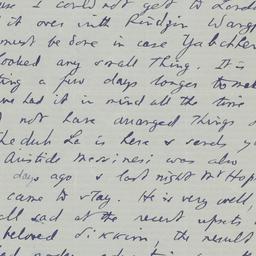 I could not get to Lond
it over with Rindzin Wang
must be done in case Yabchhen
looked any small thing. It is
ting a few days longer to mak
we had it in mind all the time
not have arranged things
heduh La is here & sends y
Aristide Messinesi was also
days ago & last night Mr Hop
came to stay. He is very well,
all sad at the recent upsets
beloved Sikkim, the result